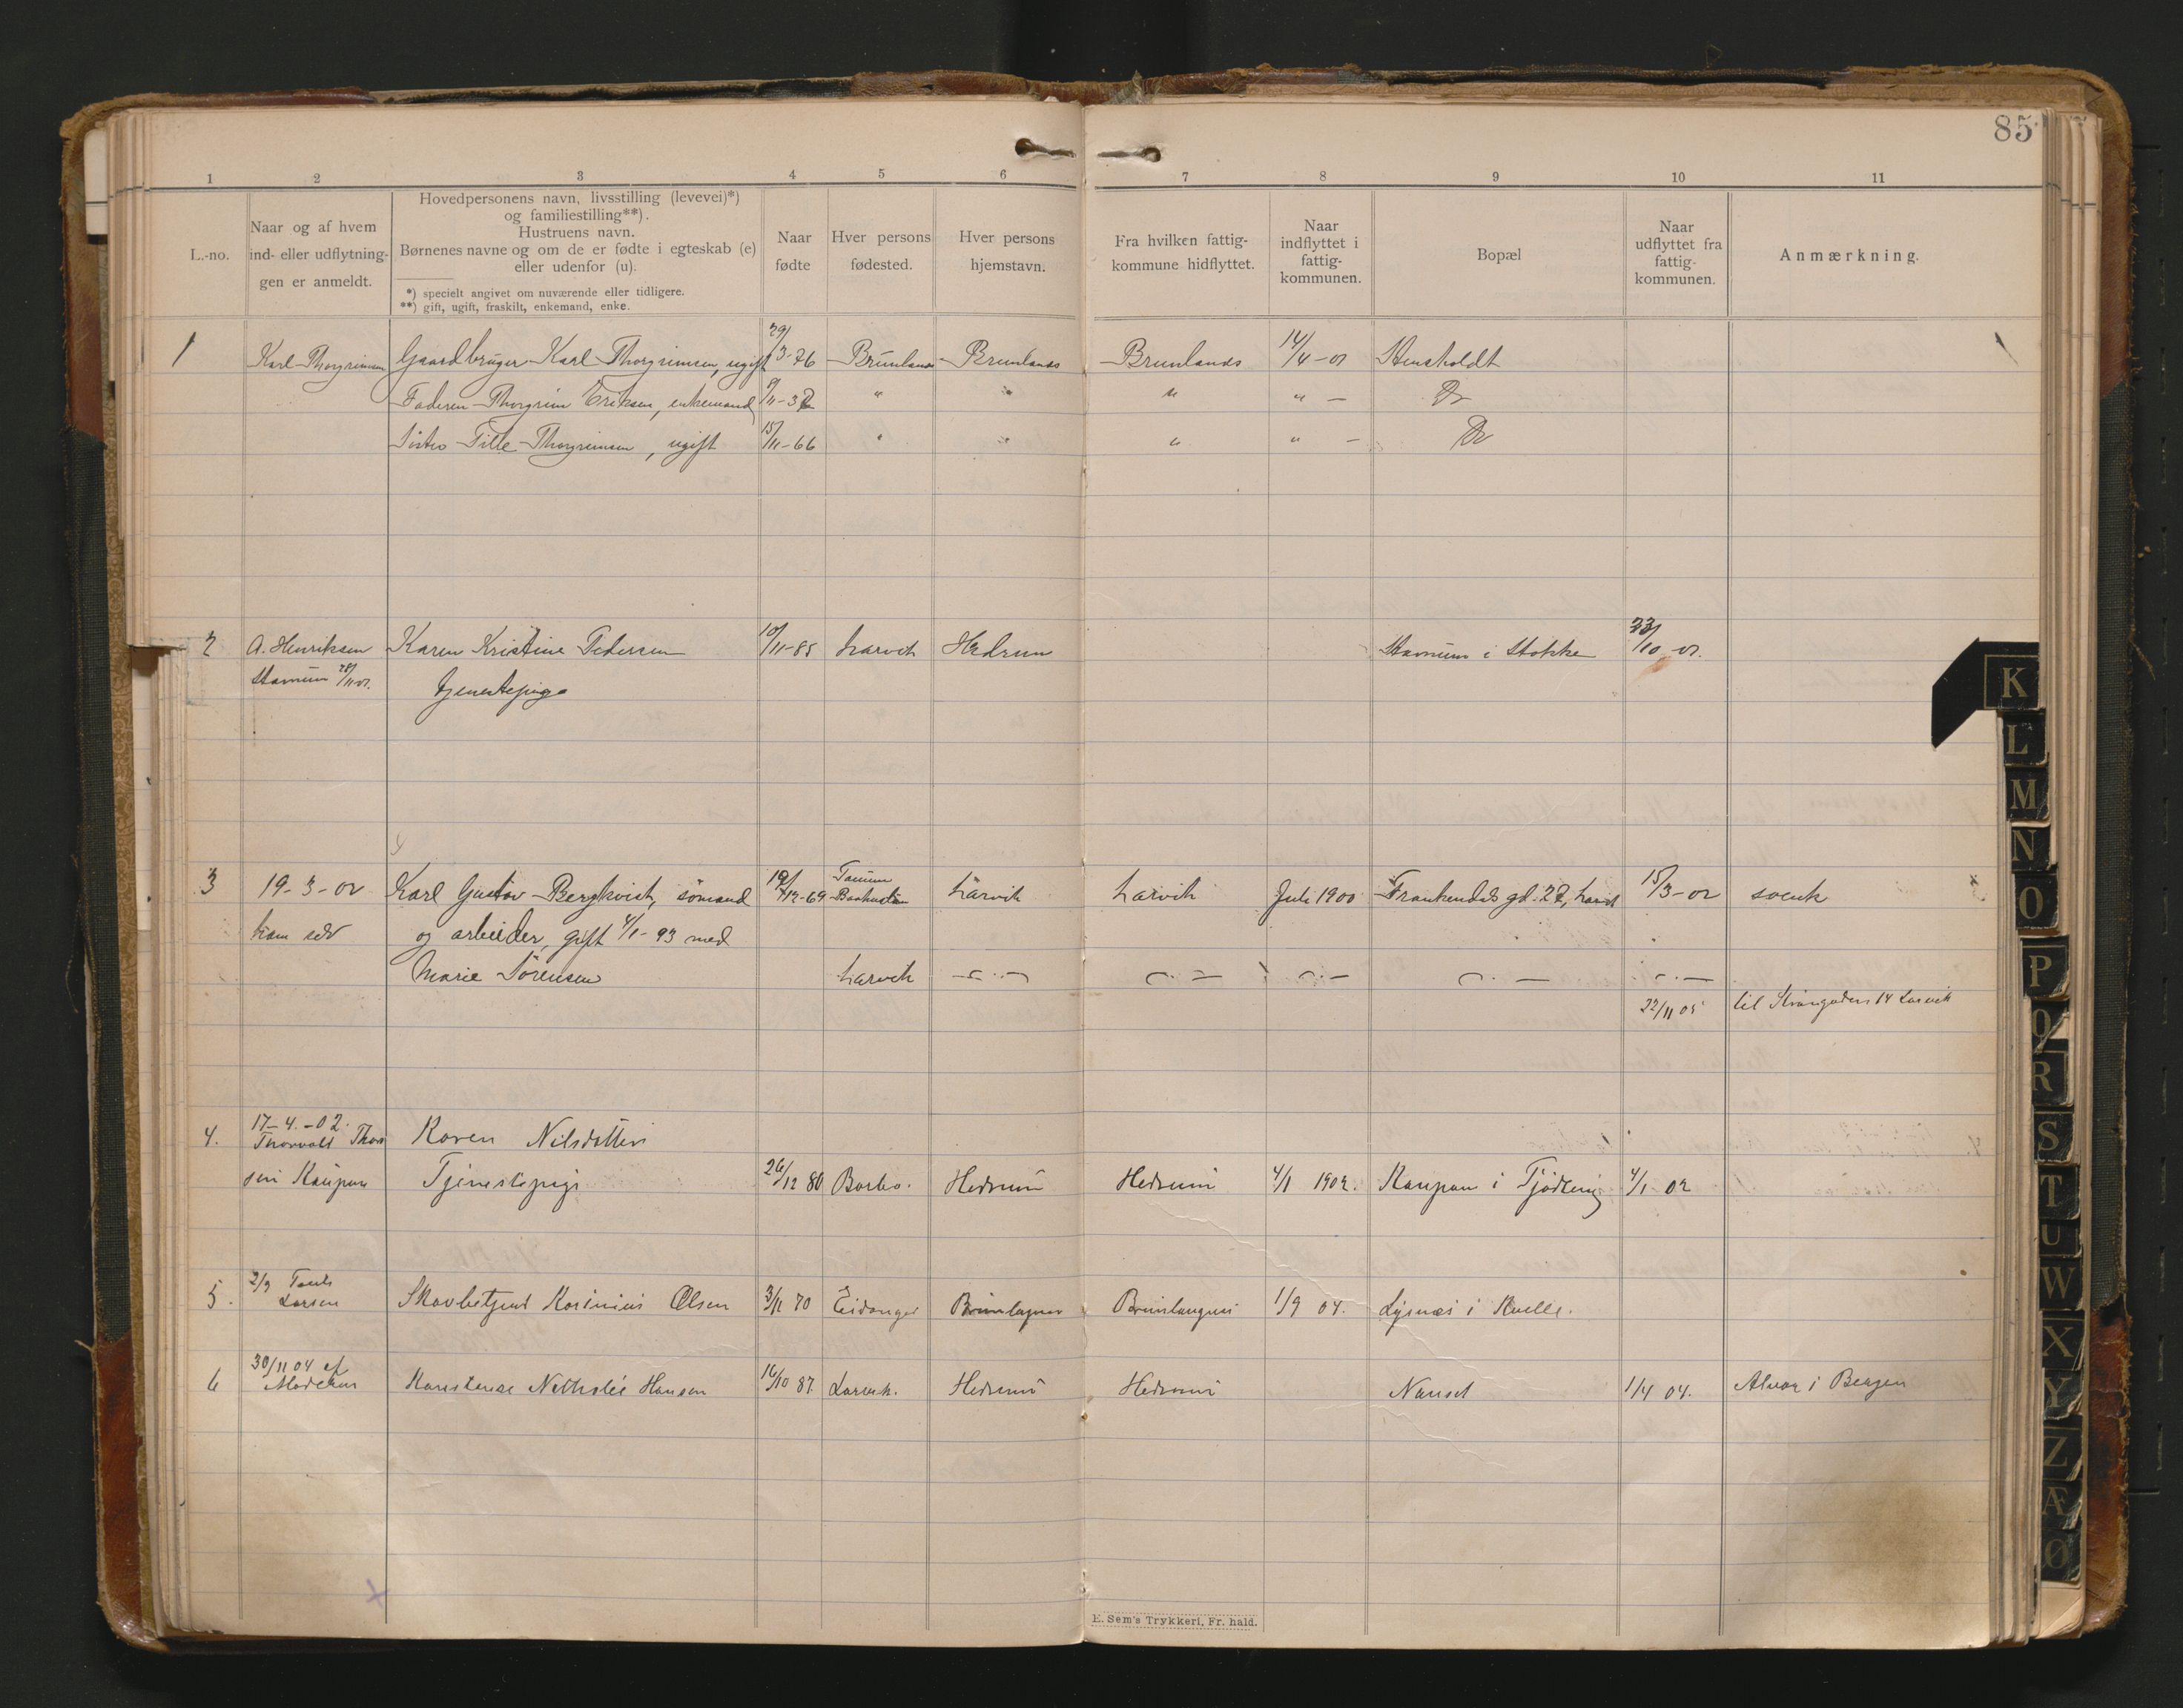 85
1 2 3 4 5 6 7 8 9 10 11
L.-no.
Naar og af hvem
ind- eller udflytnin-
gen er anmeldt.
Hovedpersonens navn, livsstilling (levevei)*)
og familiestilling**).
Hustruens navn.
Børnenes navne og om de er fødte i egteskab (e)
eller udenfor (u).
*) specielt angivet om nuværende eller tidligere.
**) gift, ugift, fraskilt, enkemand, enke.
Naar
fødte
Hver persons
fødested.
Hver persons
hjemstavn.
Fra hvilken fattig-
kommune hidflyttet.
Naar
indflyttet i
fattig-
kommunen.
Bopæl
Naar
udflyttet fra
fattig-
kommunen.
Anmærkning.
1 Karl Thorgrimsen Gaardbruger Karl Thorgrimsen, ugift 29/3-76 Brunlanes Brunlanes Brunlanes 14/4-01 Stensholdt
Faderen Thorgrim Eriksen, enkemand 9/11-32 " " " " — Do
Søster Tille Thorgrimsen, ugift 15/11-66 " " " " — Do
2 A. Henriksen Karen Kristine Pedersen 10/11-85 Larvik Hedrum Stamum i Stokke 23/10-01.
Stamum 28/11 01. tjenestepige
3 19-3-02 Karl Gustav Bergkvist, sømand 19/12-69 Tanum Baahuslän Larvik Larvik Juli 1900 Frankendals gd. 22, Larvik 15/3-02 svensk
ham selv og arbeider, gift 4/1-93 med
Marie Sørensen Larvik — " — — " — — " — — " — — " —
22/11 05 til Strangaden 14 Larvik
4. 17-4.-02. Karen Nilsdatter
Thorvald Thor
sen Kaupan Tjenestepige 26/12 80 Barbo. Hedrum Hedrum 4/1 1902. Kaupan i Tjødling 4/1 02
5. 2/9 Larsen Skovbetjent Karinius Olsen 3/11 70 Eidanger Brunlagnes Brunlangnes 1/9 04. Lysnæs i Kvelle.
6 30/11 04 af Moderen Karistense Nathalie Hansen 16/10 87. Larvik. Hedrum Hedrum Nanset 1/4 04. Alvær i Bergen
K
L
M
N
O
P
Q
R
S
T
U
W
X
Y
Z
Æ
Ø
E. Sem's Trykkeri, Fr. hald.